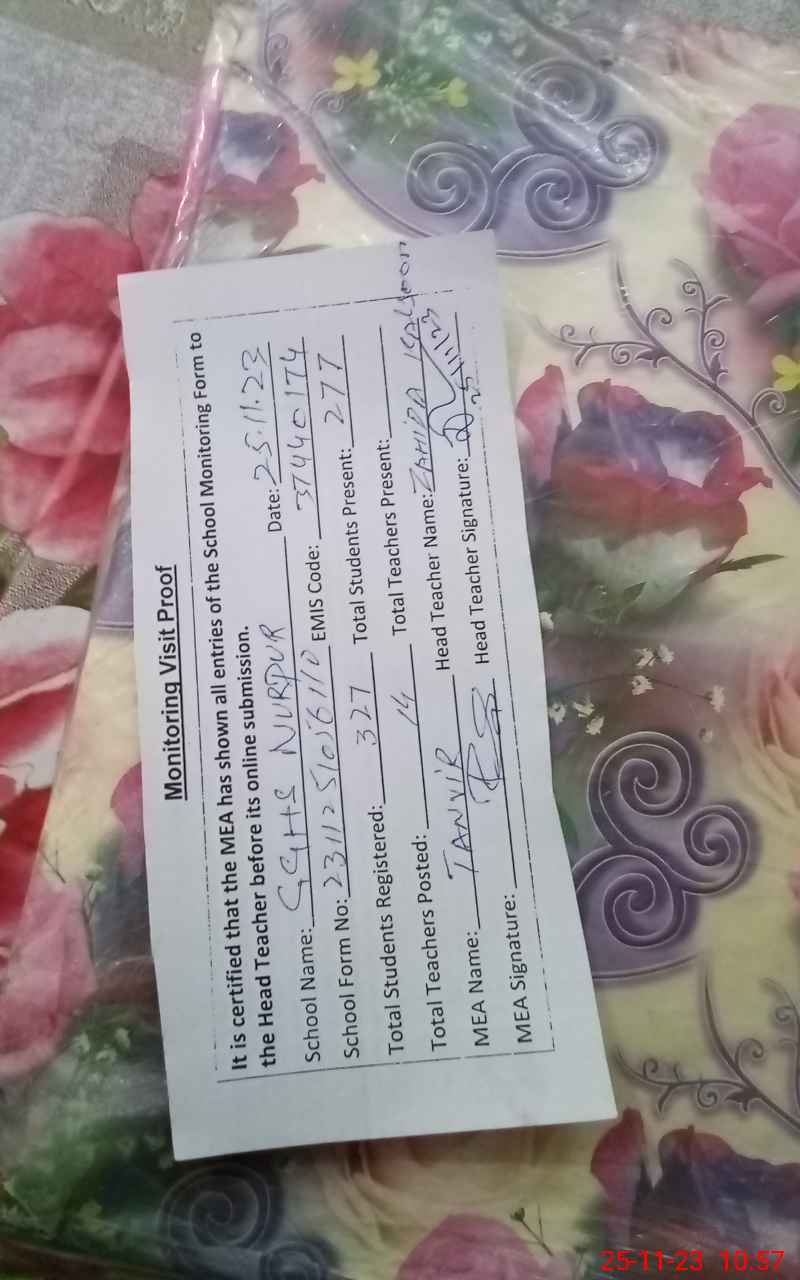 Monitoring Visit Proof
It is certified that the MEA has shown all entries of the School Monitoring Form to
the Head Teacher before its online submission.
School Name: GGHS NURPUR Date: 25.11.23
School Form No: 2311251056110 EMIS Code: 37440174
Total Students Registered: 327 Total Students Present: 277
Total Teachers Posted: 14 Total Teachers Present:
MEA Name: TANVIR Head Teacher Name: ZAHIDA KALSOOM
MEA Signature: Head Teacher Signature: 25/11/23
25-11-23 10:57